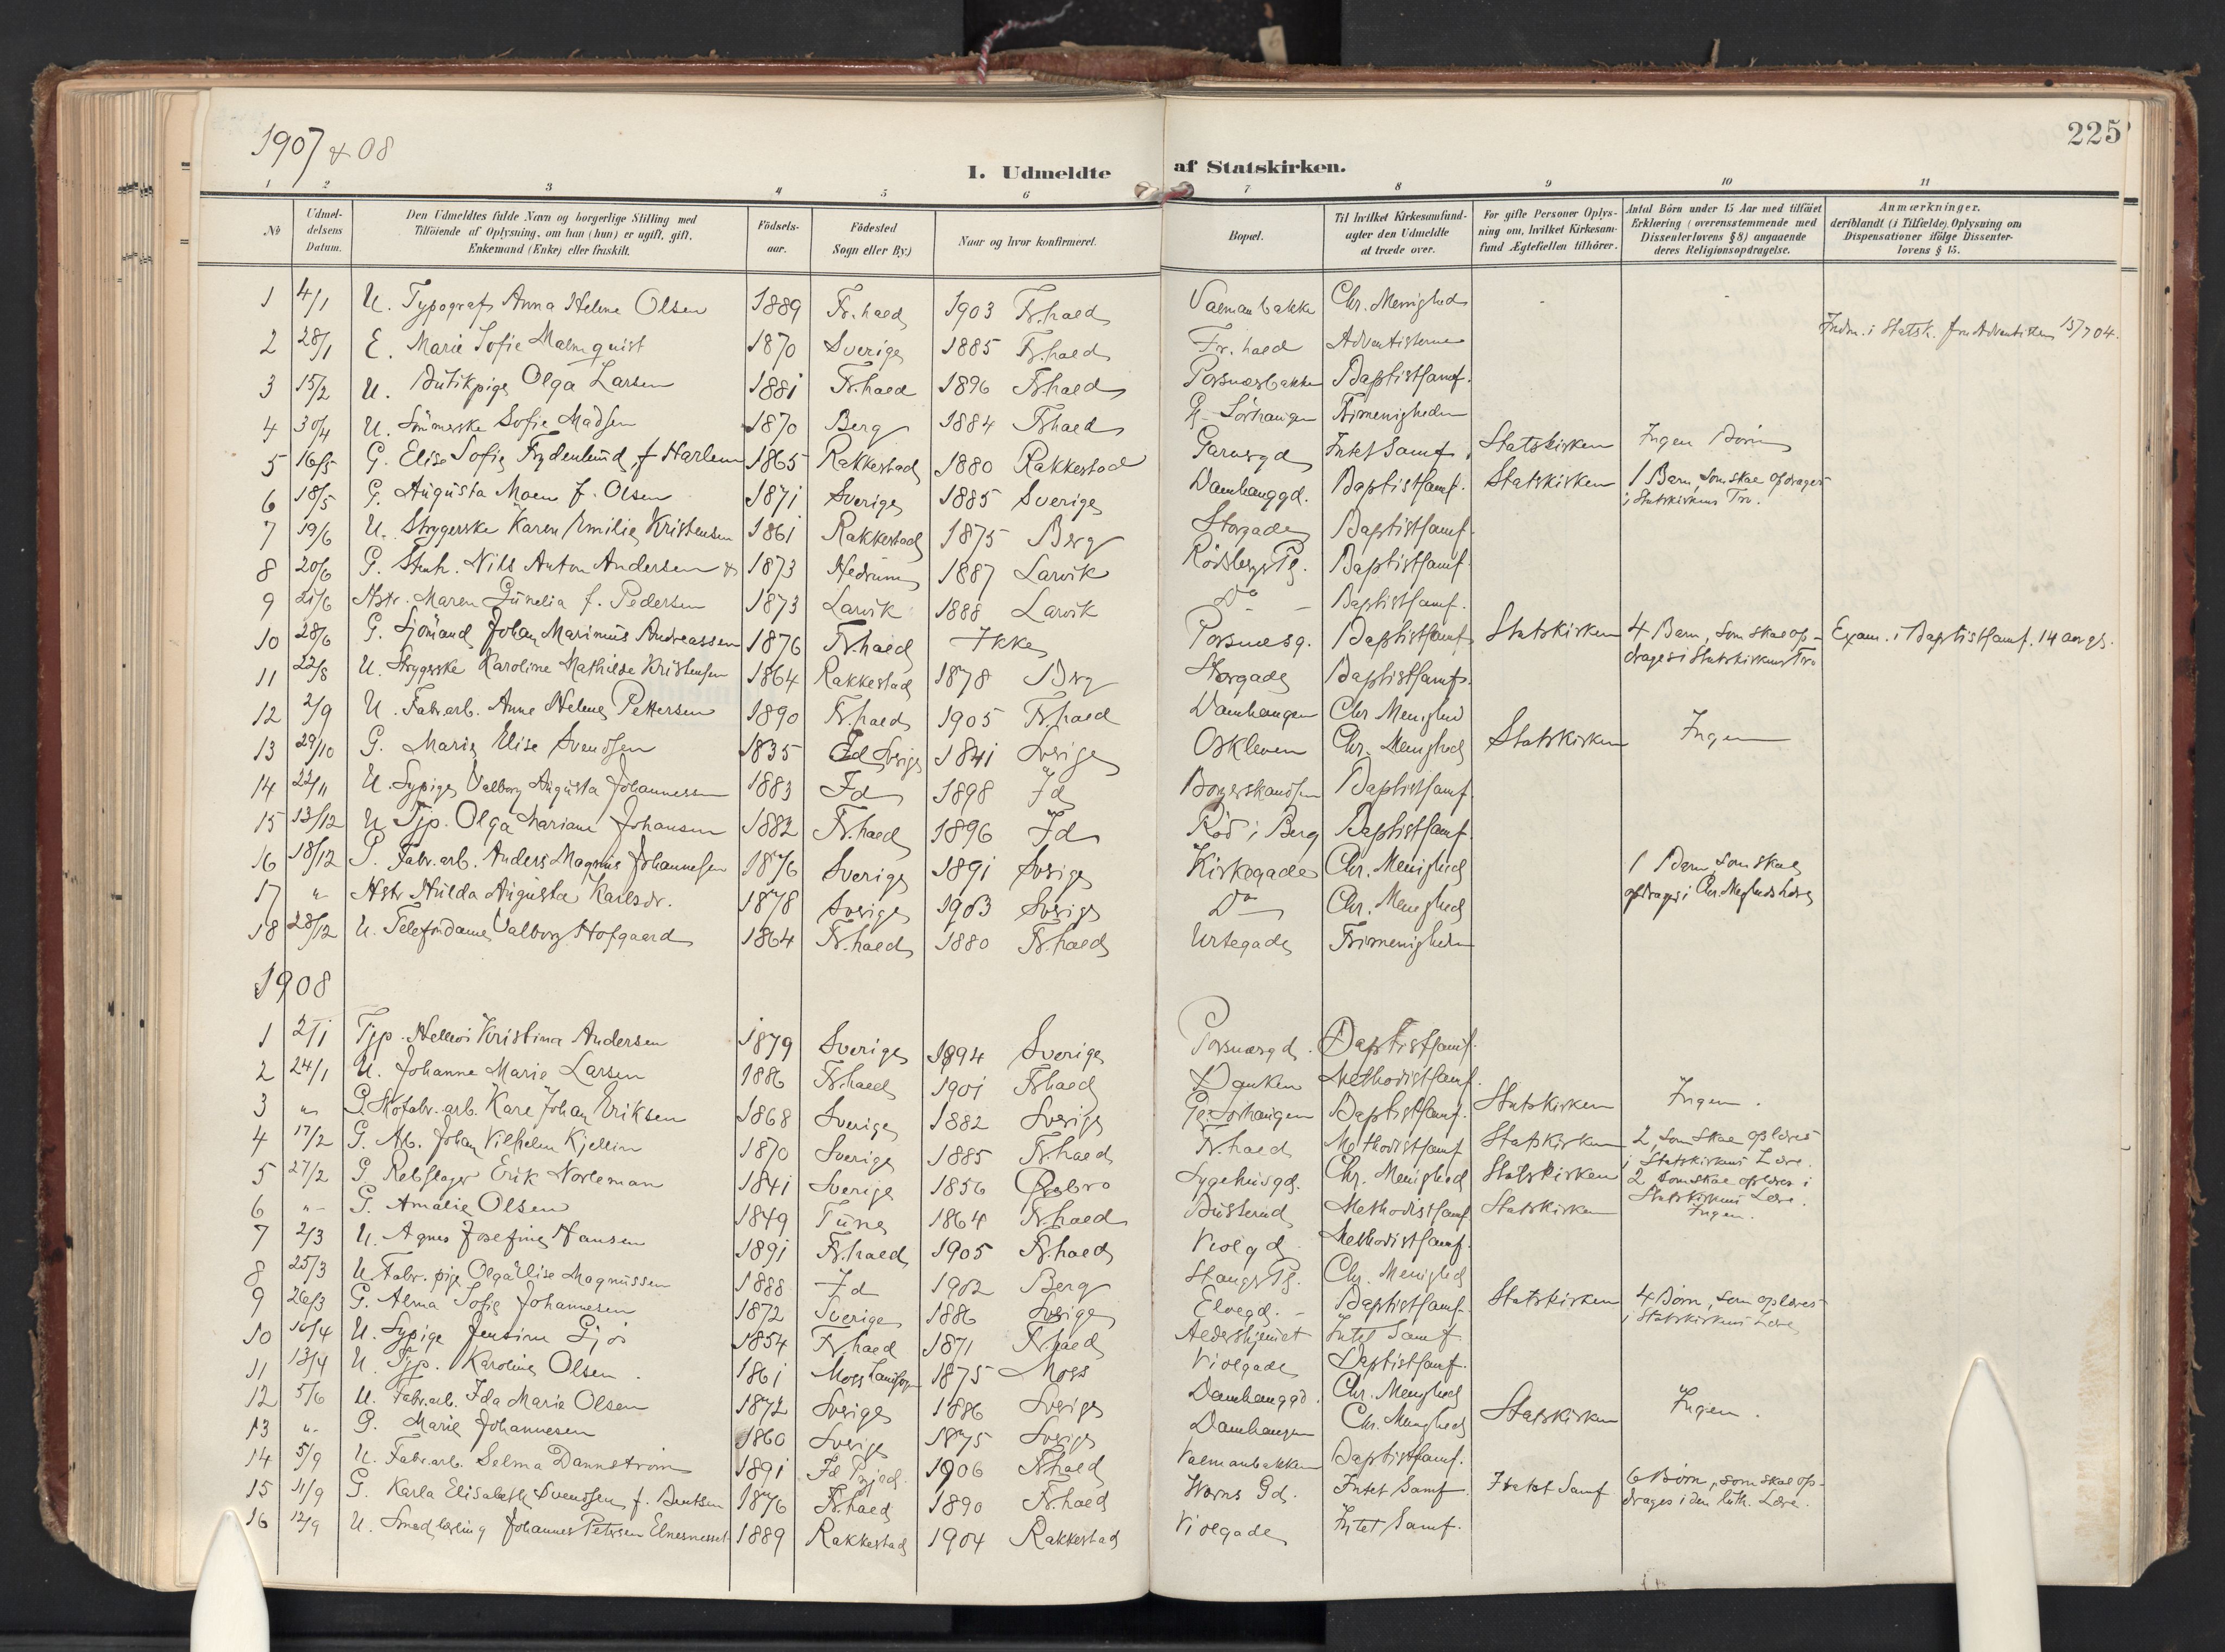 1907 & 08
225
1. Udmeldte af Statskirken.
1 2 3 4 5 6 7 8 9 10 11
No
Udmel-
delsens
Datum.
Den Udmeldtes fulde Navn og borgerlige Stilling med
Tilföiende af Oplysning, om han (hun) er ugift, gift,
Enkemand (Enke) eller fraskilt.
Födsels-
aar.
Födested
Sogn eller By.)
Naar og hvor konfirmeret.
Bopæl.
Til hvilket Kirkesamfund-
agter den Udmeldte
at træde over.
For gifte Personer Oplys-
ning om, hvilket Kirkesam-
fund Ægtefællen tilhörer.
Antal Börn under 15 Aar med tilföiet
Erklæring (overensstemmende med
Dissenterlovens § 8) angaaende
deres Religionsopdragelse.
Anmærkninger,
deriblandt (i Tilfælde) Oplysning om
Dispensationer ifölge Dissenter-
lovens § 15.
1 4/1 U. Typograf Anna Helene Olsen 1889 Fr.hald 1903 Fr.hald Valmanbakke Chr. Menighed
Indm. i Statsk. fra Adventisten 15/7 04.
2 28/1 E. Marie Sofie Malmquist 1870 Sverige 1885 Fr.hald Fr.hald Adventisterne
3 15/2 U. Butikpige Olga Larsen 1881 Fr.hald 1896 Fr.hald Porsnesbakke Baptistsamf.
4 30/4 U. Sömmerske Sofie Madsen 1870 Berg 1884 Frhald Sörhaugen Frimenigheden
5 16/5 G. Elise Sofie Frydenlund, f. Harlem 1865 Rakkestad 1880 Rakkestad Garvergd Intet Samf. Statskirken Ingen Börn
6 18/5 G. Augusta Moen f. Olsen 1871 Sverige 1885 Sverige Damhauggd. Baptistsamf. Statskirken 1 Barn, som skal opdrages
i Statskirkens Tro.
7 19/6 U. Strygerske Karen Emilie Kristensen 1861 Rakkestad 1875 Berg Storgade Baptistsamf.
8 20/6 G. Stenh. Nils Anton Andersen & 1873 Hedrum 1887 Larvik Rödsberg Pg. Baptistsamf.
9 21/6 Hstr. Maren Gunelia f. Pedersen 1873 Larvik 1888 Larvik Do Baptistsamf.
10 28/6 G. Sjömand Johan Marinius Andreassen 1876 Fr.hald Ikke Porsnesg. Baptistsamf. Statskirken 4 Barn, som skal op- Exam. i Baptistsamf. 14 aar gl.
drages i Statskirkens Tro
11 22/8 U. Strygerske Karoline Mathilde Kristensen 1864 Rakkestad 1878 Berg Storgade Baptistsamf.
12 2/9 U. Fabr.arb. Anne Helene Pettersen 1890 Fr.hald 1905 Fr.hald Damhaugen Chr Menighed
13 29/10 G. Marie Elise Svendsen 1835 Id Sverige 1841 Sverige Oskleven Chr. Menighed Statskirken Ingen
14 22/11 U. Sypige Valborg Augusta Johannessen 1883 Id 1898 Id Borgerskandsen Baptistsamf.
15 13/12 U Tjp. Olga Mariane Johansen 1882 Fr.hald 1896 Id Röd i Berg Baptistsamf.
16 18/12 G. Fabr.arb. Anders Magnus Johannesen 1876 Sverige 1891 Sverige Kirkegade Chr. Menighed 1 Barn, som skal
17 " Hstr Hulda Augusta Karlsdr. 1878 Sverige 1903 Sverige Do Chr. Menighed opdrages i Chr. Meghds Lære
18 28/12 U. Telefondame Valborg Hofgaard 1864 Fr.hald 1880 Fr.hald Urtegade Frimenigheden
1908
1 2/1 Tjp. Kristina Andersen 1879 Sverige 1894 Sverige Porsnesgd. Baptistsamf.
2 24/1 U. Johanne Marie Larsen 1886 Fr.hald 1901 Frhald Banken Methodistsamf.
3 " G. Skofabr.arb. Karl Johan Eriksen 1868 Sverige 1882 Sverige Sörhaugen Baptistsamf. Statskirken Ingen.
4 17/2 G. Arb. Johan Vilhelm Kjellin 1870 Sverige 1885 Fr.hald Fr.hald Methodistsamf Statskirken 2, som skal oplæres
i Statskirkens Lære.
5 27/2 G. Rebslager Erik Norleman 1841 Sverige 1856 Örebro Sygehusgd. Chr. Menighed Statskirken 2 som skal oplæres i
Statskirkens Lære.
6 " G. Amalie Olsen 1849 Tune 1864 Fr.hald Busterud Methodistsamf Statskirken Ingen.
7 2/3 U. Agnes Josefine Hansen 1891 Fr.hald 1905 Fr.hald Violgd Methodistsamf.
8 25/3 U. Fabr. pige Olga Elise Magnussen 1888 Id 1902 Berg Stangs Pg. Chr. Menighed
9 26/3 G. Alma Sofie Johannesen 1872 Sverige 1886 Sverige Elvegd. Baptistsamf. Statskirken 4 Börn, som oplæres
i Statskirkens Lære
10 10/4 U. Sypige Jensine Gjös 1854 Fr.hald 1871 Fr.hald Aldershjemet Intet Samf
11 13/4 U. Tjp. Karoline Olsen 1861 Moss Landsogn 1875 Moss Violgade Baptistsamf.
12 5/6 U. Fabr.arb. Ida Marie Olsen 1872 Sverige 1886 Sverige Damhauggd. Chr. Menighed
13 " G. Marie Johannesen 1860 Sverige 1875 Sverige Damhaugen Chr. Menighed Statskirken Ingen.
14 5/9 U. Fabr.arb. Selma Dannström 1891 Id 1906 Frhald Valmanbakken Baptistsamf.
15 11/9 G. Karla Elisabeth Svendsen f. Berntsen 1876 Fr.hald 1890 Fr.hald Worns Gd. Intet Samf. Intet Samf 6 Börn, som skal op-
drages i den luth. Lære.
16 12/9 U. Smedlærling Johannes Petersen Elnesnesset 1889 Rakkestad 1904 Rakkestad Violgade Intet Samf.